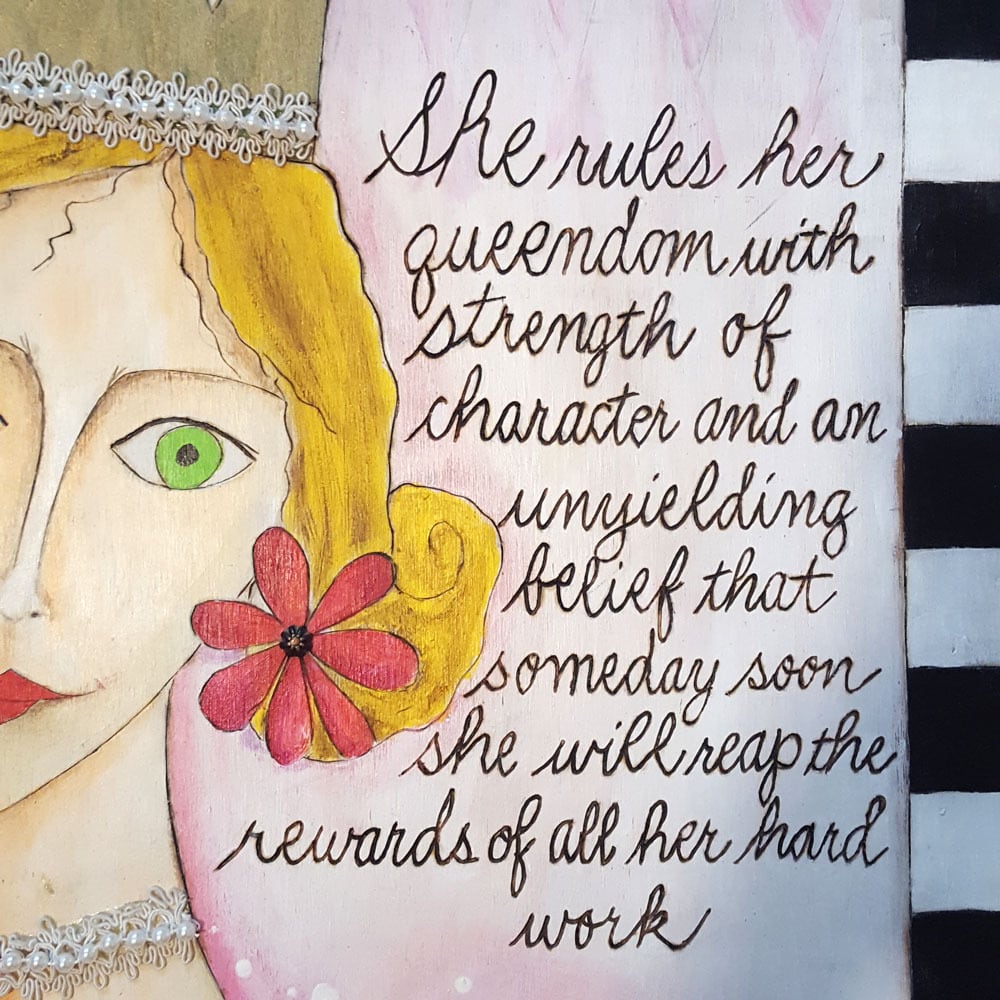 She rules her
queendom with
strength of
character and an
unyielding
belief that
someday soon
she will reap the
rewards of all her hard
work